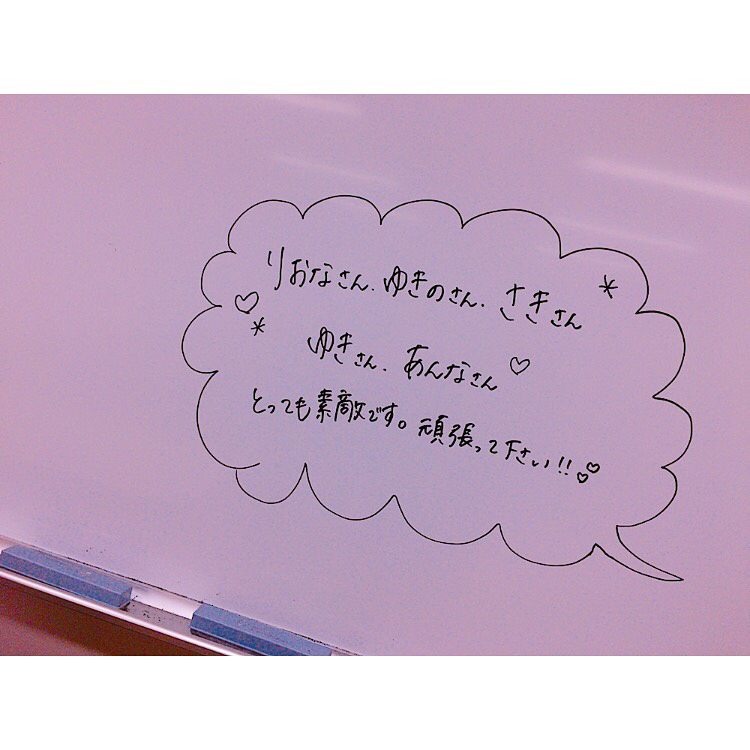 りおなさん、ゆきのさん、さきさん
ゆきさん、あんなさん♡
とっても素敵です。頑張って下さい!!